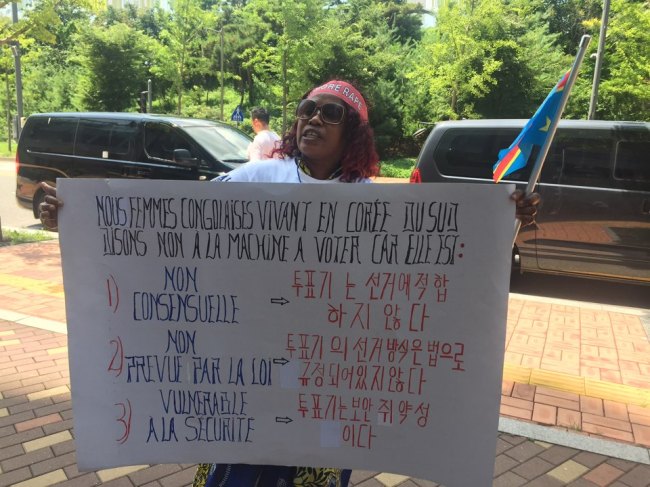 RE RAPE
NOUS FEMMES CONGOLAISES VIVANT EN CORÉE DU SUD
DISONS NON A LA MACHINE A VOTER CAR ELLE EST :
1) NON CONSENSUELLE ⇨ 투표기 는 선거에 적합
하지 않다
2) NON
PREVUE PAR LA LOI ⇨ 투표기 의 선거 방식은 법으로
규정되어 있지 않다
3) VULNERABLE
A LA SÉCURITÉ ⇨ 투표기는 보안 쥐 약성
이다